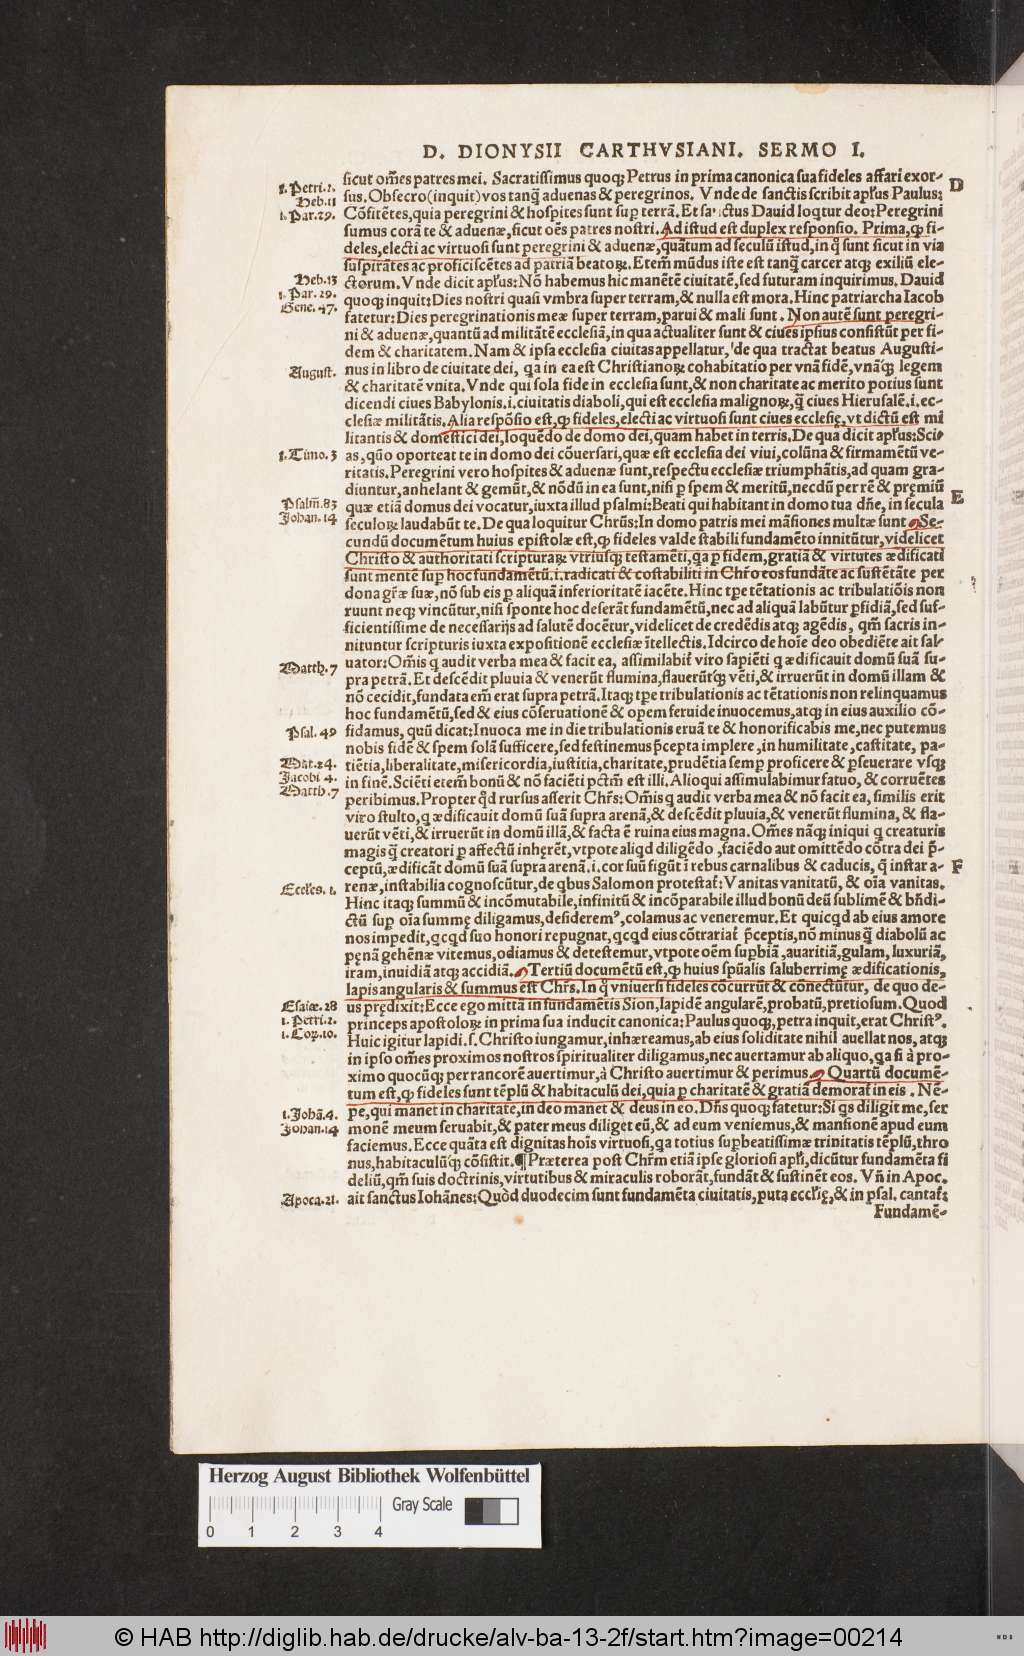 D. DIONYSII CARTHVSIANI. SERMO I.
ſicut om̃es patres mei. Sacratiſſimus quoqꝫ Petrus in prima canonica ſua fideles affari exor-
ſus. Obſecro (inquit) vos tanq̃ aduenas & peregrinos. Vnde de ſanctis ſcribit apl̃us Paulus:
Cõfitẽtes, quia peregrini & hoſpites ſunt ſup terrã. Et ſanctus Dauid loqtur deo: Peregrini
ſumus corã te & aduenæ, ſicut oẽs patres noſtri. Ad iſtud eſt duplex reſponſio. Prima, ꝙ fi-
deles, electi ac virtuoſi ſunt peregrini & aduenæ, quãtum ad ſeculũ iſtud, in q̃ ſunt ſicut in via
ſuſpirãtes ac proficiſcẽtes ad patriã beatoꝝ. Etem̃ mũdus iſte eſt tanq̃ carcer atqꝫ exiliũ ele-
ctorum. Vnde dicit apl̃us: Nõ habemus hic manẽtẽ ciuitatẽ, ſed futuram inquirimus. Dauid
quoqꝫ inquit: Dies noſtri quaſi vmbra ſuper terram, & nulla eſt mora. Hinc patriarcha Iacob
fatetur: Dies peregrinationis meæ ſuper terram, parui & mali ſunt. Non autẽ ſunt peregri-
ni & aduenæ, quantũ ad militãtẽ eccleſiã, in qua actualiter ſunt & ciues ipſius conſiſtũt per fi-
dem & charitatem. Nam & ipſa eccleſia ciuitas appellatur, de qua tractat beatus Auguſti-
nus in libro de ciuitate dei, qa in ea eſt Chriſtianoꝝ cohabitatio per vnã fidẽ, vnãqꝫ legem
& charitatẽ vnita. Vnde qui ſola fide in eccleſia ſunt, & non charitate ac merito potius ſunt
dicendi ciues Babylonis .i. ciuitatis diaboli, qui eſt eccleſia malignoꝝ, q̃ ciues Hieruſalẽ .i. ec-
cleſiæ militãtis. Alia reſpõſio eſt, ꝙ fideles, electi ac virtuoſi ſunt ciues eccleſię, vt dictũ eſt mi
litantis & domeſtici dei, loquẽdo de domo dei, quam habet in terris. De qua dicit apl̃us: Sci-
as, qũo oporteat te in domo dei cõuerſari, quæ eſt eccleſia dei viui, colũna & firmamẽtũ ve-
ritatis. Peregrini vero hoſpites & aduenæ ſunt, reſpectu eccleſiæ triumphãtis, ad quam gra-
diuntur, anhelant & gemũt, & nõdũ in ea ſunt, niſi ꝑ ſpem & meritũ, necdũ per rẽ & pręmiũ
quæ etiã domus dei vocatur, iuxta illud pſalmi: Beati qui habitant in domo tua dñe, in ſecula
ſeculoꝝ laudabũt te. De qua loquitur Chrũs: In domo patris mei mãſiones multæ ſunt. Se-
cundũ documẽtum huius epiſtolæ eſt, ꝙ fideles valde ſtabili fundamẽto innitũtur, videlicet
Chriſto & authoritati ſcripturaꝝ vtriuſqꝫ teſtamẽti, qa ꝑ fidem, gratiã & virtutes ædificati
ſunt mentẽ ſup hoc fundamẽtũ .i. radicati & coſtabiliti in Chr̃o eos fundãte ac ſuſtẽtãte per
dona gr̃æ ſuæ, nõ ſub eis ꝑ aliquã inferioritatẽ iacẽte. Hinc tꝑe tẽtationis ac tribulatiõis non
ruunt neqꝫ vincũtur, niſi ſponte hoc deſerãt fundamẽtũ, nec ad aliquã labũtur ꝑfidiã, ſed ſuf-
ficientiſſime de neceſſarijs ad ſalutẽ docẽtur, videlicet de credẽdis atqꝫ agẽdis, qm̃ ſacris in-
nituntur ſcripturis iuxta expoſitionẽ eccleſiæ ĩtellectis. Idcirco de hoĩe deo obediẽte ait ſal-
uator: Om̃is q audit verba mea & facit ea, aſſimilabit̃ viro ſapiẽti q ædificauit domũ ſuã ſu-
pra petrã. Et deſcẽdit pluuia & venerũt flumina, flauerũtqꝫ vẽti, & irruerũt in domũ illam &
nõ cecidit, fundata em̃ erat ſupra petrã. Itaqꝫ tꝑe tribulationis ac tẽtationis non relinquamus
hoc fundamẽtũ, ſed & eius cõſeruationẽ & opem feruide inuocemus, atqꝫ in eius auxilio cõ-
fidamus, quũ dicat: Inuoca me in die tribulationis eruã te & honorificabis me, nec putemus
nobis fidẽ & ſpem ſolã ſufficere, ſed feſtinemus p̃cepta implere, in humilitate, caſtitate, pa-
tiẽtia, liberalitate, miſericordia, iuſtitia, charitate, prudẽtia ſemp proficere & ꝑſeuerare vſqꝫ
in finẽ. Sciẽti etem̃ bonũ & nõ faciẽti pctm̃ eſt illi. Alioqui aſſimulabimur fatuo, & corruẽtes
peribimus. Propter qd̃ rurſus aſſerit Chr̃s: Om̃is q audit verba mea & nõ facit ea, ſimilis erit
viro ſtulto, q ædificauit domũ ſuã ſupra arenã, & deſcẽdit pluuia, & venerũt flumina, & fla-
uerũt vẽti, & irruerũt in domũ illã, & facta ẽ ruina eius magna. Om̃es nãqꝫ iniqui q creaturis
magis q̃ creatori ꝑ affectũ inhęrẽt, vtpote aliqd diligẽdo, faciẽdo aut omittẽdo cõtra dei p̃-
ceptũ, ædificãt domũ ſuã ſupra arenã .i. cor ſuũ figũt ĩ rebus carnalibus & caducis, q̃ inſtar a-
renæ, inſtabilia cognoſcũtur, de qbus Salomon proteſtat̃: Vanitas vanitatũ, & oĩa vanitas.
Hinc itaqꝫ ſummũ & incõmutabile, infinitũ & incõparabile illud bonũ deũ ſublimẽ & bñdi-
ctũ ſup oĩa ſummę diligamus, deſideremꝰ, colamus ac veneremur. Et quicqd ab eius amore
nos impedit, qcqd ſuo honori repugnat, qcqd eius cõtrariat̃ p̃ceptis, nõ minus q̃ diabolũ ac
pęnã gehẽnæ vitemus, odiamus & deteſtemur, vtpote oẽm ſupbiã, auaritiã, gulam, luxuriã,
iram, inuidiã atqꝫ accidiã. Tertiũ documẽtũ eſt, ꝙ huius ſpũalis ſaluberrimę ædificationis,
lapis angularis & ſummus eſt Chr̃s. In q̃ vniuerſi fideles cõcurrũt & cõnectũtur, de quo de-
us prędixit: Ecce ego mittã in fundamẽtis Sion, lapidẽ angularẽ, probatũ, pretioſum. Quod
princeps apoſtoloꝝ in prima ſua inducit canonica: Paulus quoqꝫ, petra inquit, erat Chriſtꝰ.
Huic igitur lapidi .ſ. Chriſto iungamur, inhæreamus, ab eius ſoliditate nihil auellat nos, atqꝫ
in ipſo om̃es proximos noſtros ſpiritualiter diligamus, nec auertamur ab aliquo, qa ſi à pro-
ximo quocũqꝫ per rancorẽ auertimur, à Chriſto auertimur & perimus. Quartũ documẽ-
tum eſt, ꝙ fideles ſunt tẽplũ & habitaculũ dei, quia ꝑ charitatẽ & gratiã demorat̃ in eis. Nẽ-
pe, qui manet in charitate, in deo manet & deus in eo. Dñs quoqꝫ fatetur: Si qs diligit me, ſer
monẽ meum ſeruabit, & pater meus diliget eũ, & ad eum veniemus, & manſionẽ apud eum
faciemus. Ecce quãta eſt dignitas hoĩs virtuoſi, qa totius ſuꝑbeatiſſimæ trinitatis tẽplũ, thro
nus, habitaculũqꝫ cõſiſtit. ¶ Præterea poſt Chr̃m etiã ipſe glorioſi apl̃i, dicũtur fundamẽta fi
deliũ, qm̃ ſuis doctrinis, virtutibus & miraculis roborãt, fundãt & ſuſtinẽt eos. Vñ in Apoc.
ait ſanctus Iohãnes: Quòd duodecim ſunt fundamẽta ciuitatis, puta eccl̃ię, & in pſal. cantat̃:
Fundamẽ-
1. Petri. 2.
Heb. 11
1. Par. 29.
Heb. 13
1. Par. 29.
Gene. 47.
Auguſt.
1. Timo. 3
Pſalm̃. 83
Johan. 14
Matth. 7
Pſal. 49
Mat. 24.
Jacobi 4.
Matth. 7
Eccles. 1.
Eſaiæ. 28
1. Petri. 2.
1. Coꝛ. 10.
1. Johã. 4.
Johan. 14
Apoca. 21.
D
E
F
Herzog August Bibliothek Wolfenbüttel
Gray Scale
0 1 2 3 4
© HAB http://diglib.hab.de/drucke/alv-ba-13-2f/start.htm?image=00214